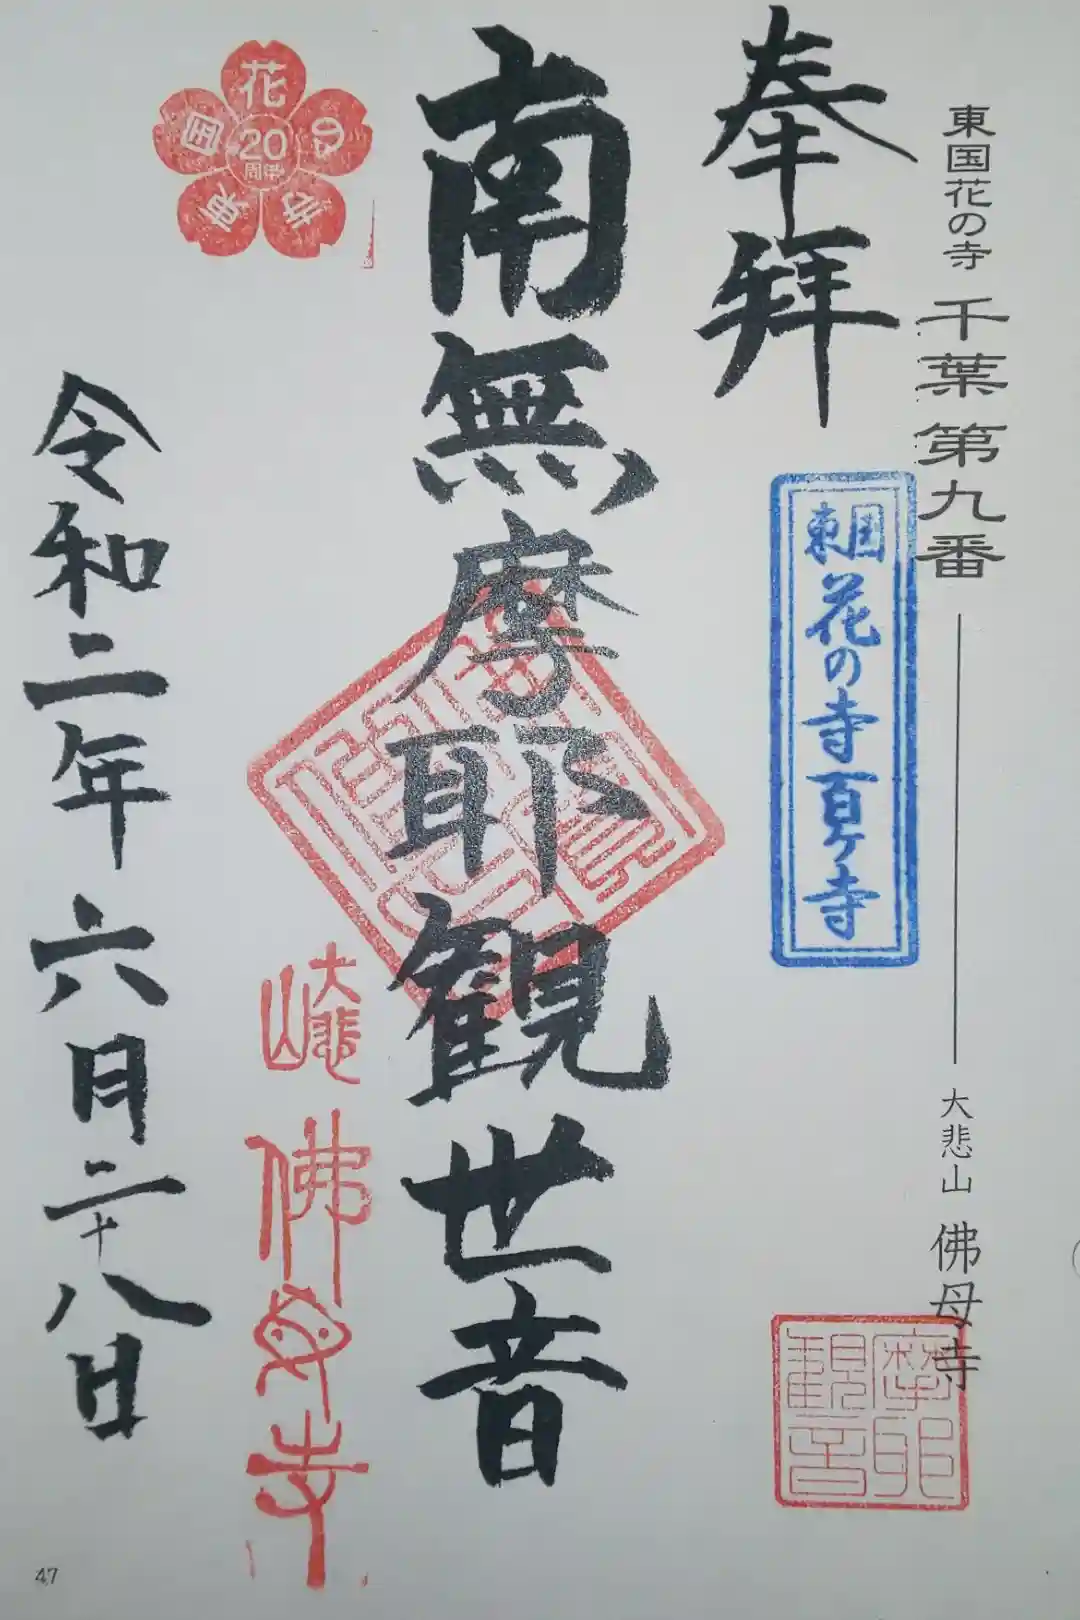 東国花の寺 千葉第九番 大悲山 佛母寺
奉拝
東国花の寺百ヶ寺
摩耶
観音
南無摩耶観世音
大悲山
佛母寺
東国花の寺
20
周年
令和二年六月二十八日
47